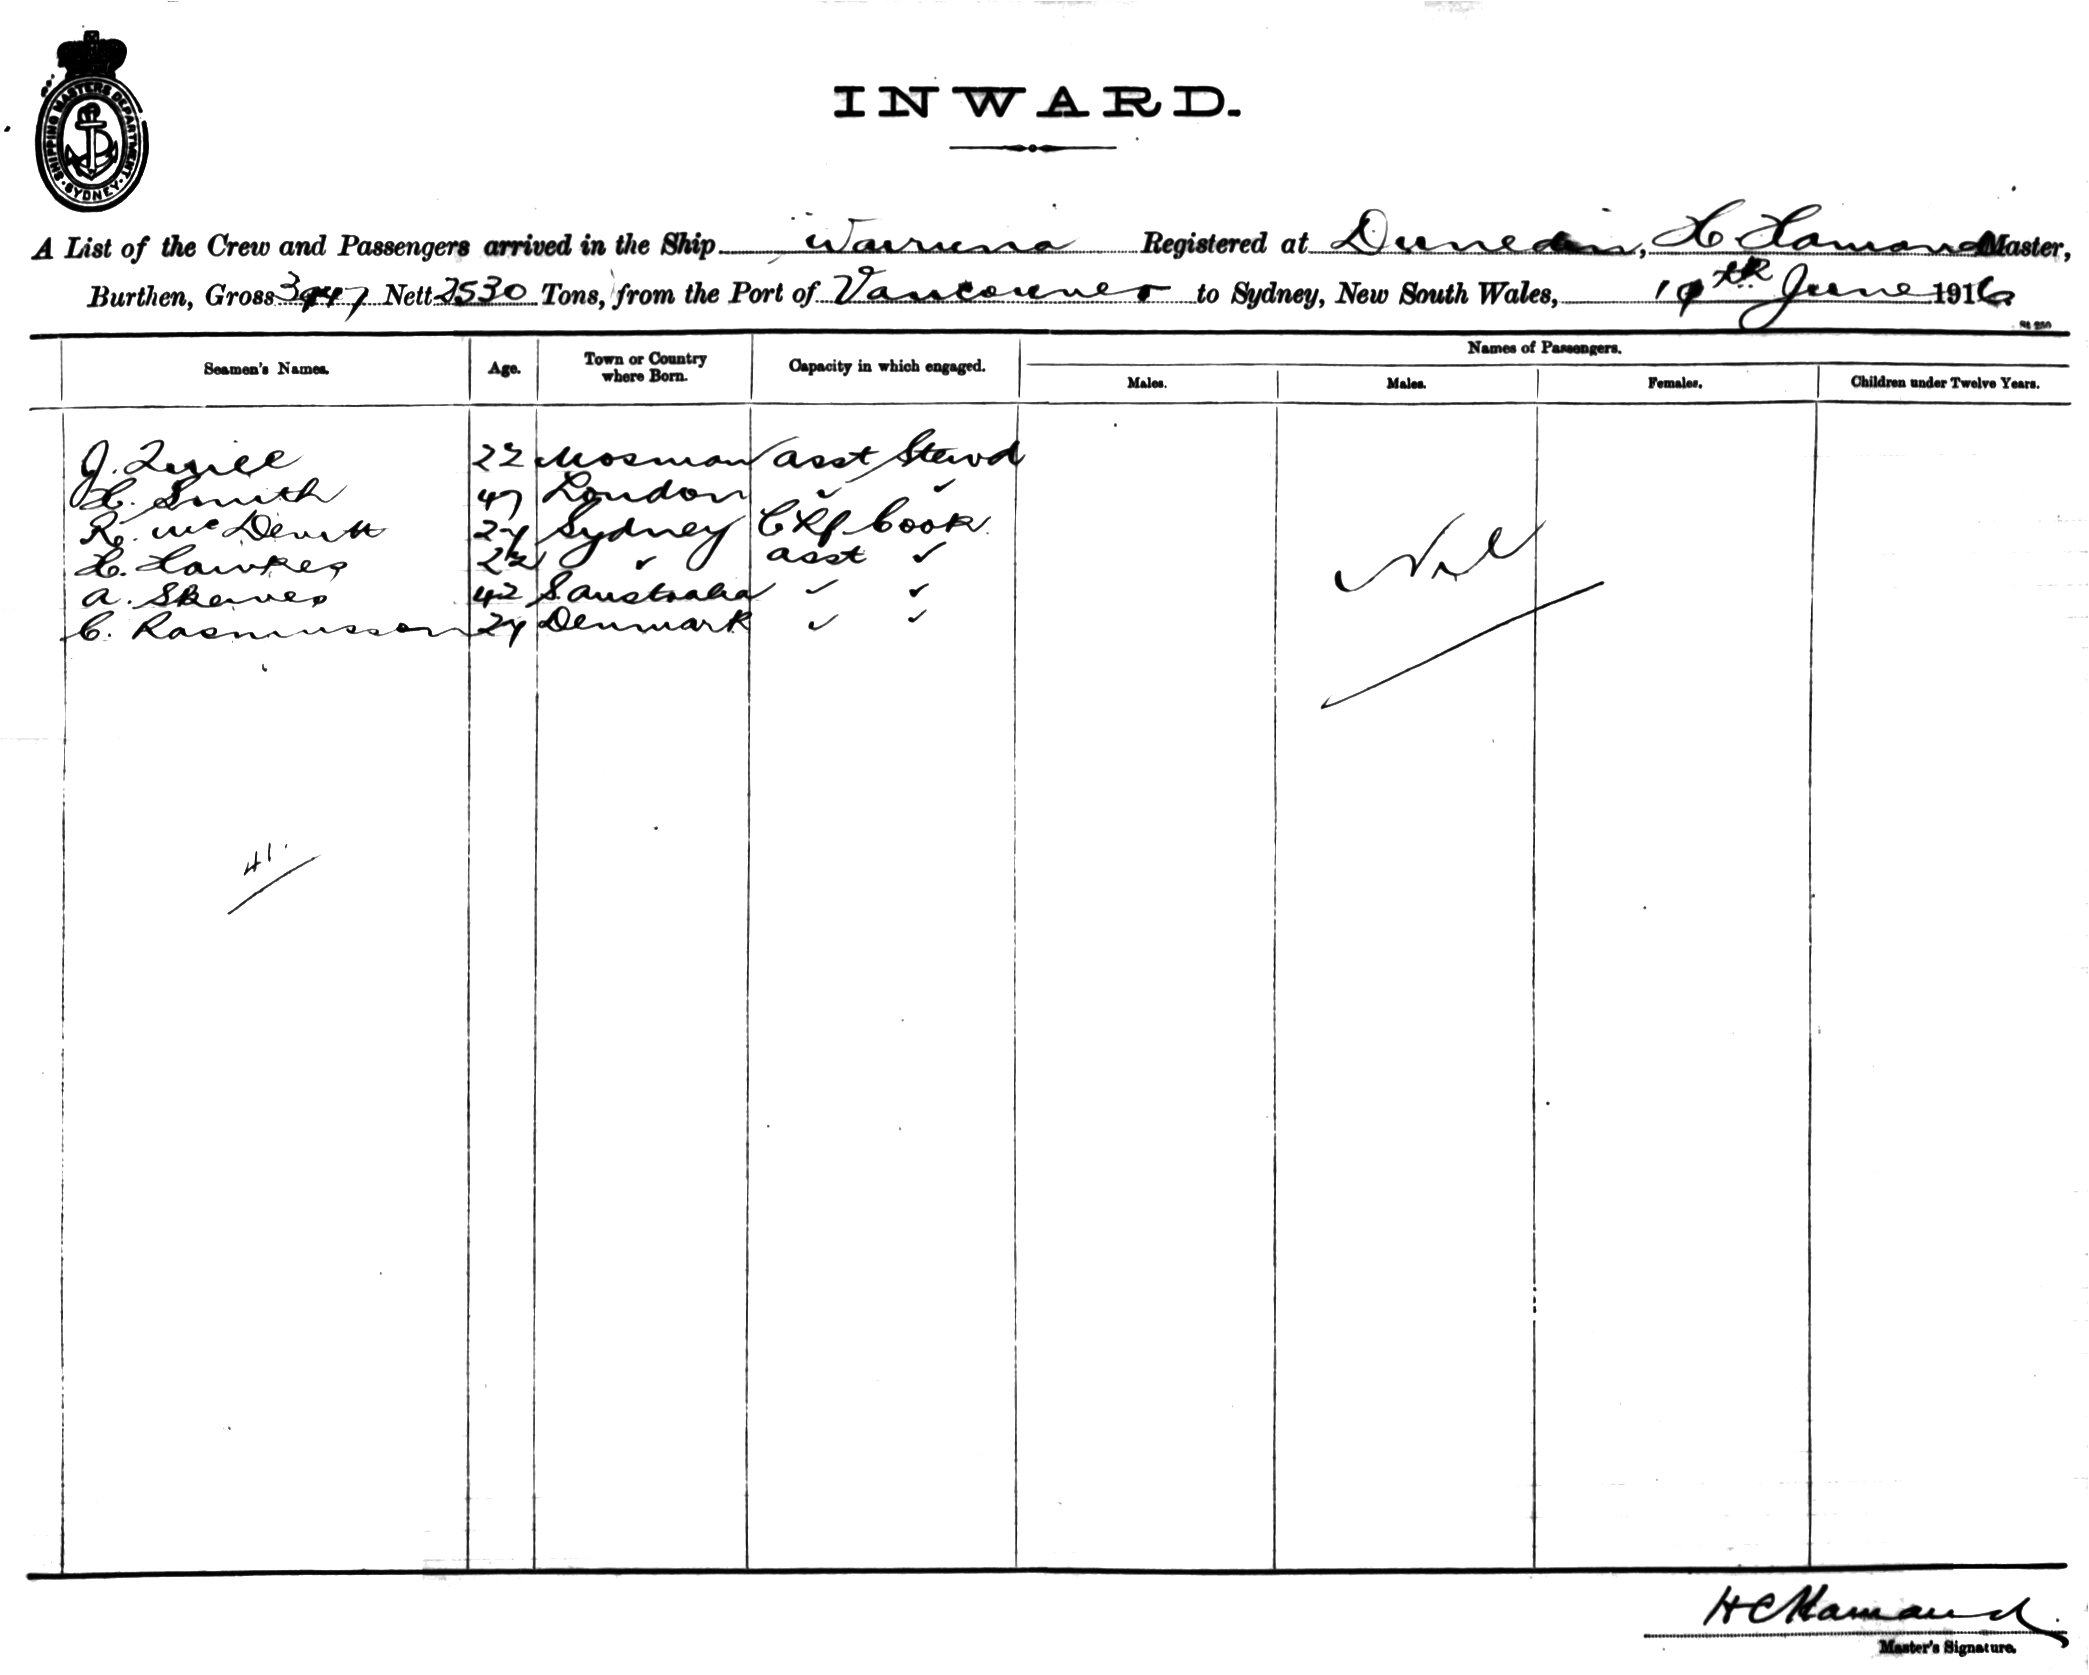 SHIPPING MASTERS DEPARTMENT. SYDNEY.
INWARD.
A List of the Crew and Passengers arrived in the Ship Waruna Registered at Dunedin, H Hamand Master,
Burthen, Gross 3947 Nett 2530 Tons, from the Port of Vancouver to Sydney, New South Wales, 19th June 1916
Seamen's Names. Age. Town or Country where Born. Capacity in which engaged. Names of Passengers.
Males. Males. Females. Children under Twelve Years.
J. 22 Mosman asst Stewd
H. Smith 47 London ✓ ✓
R. McDevitt 24 Sydney Chf Cook
H. Hawkes 22 ✓ asst ✓
A. Skewes 42 S. Australia ✓ ✓
C. Rasmusson 24 Denmark ✓ ✓
Nil
41.
HCHamand
Master's Signature.